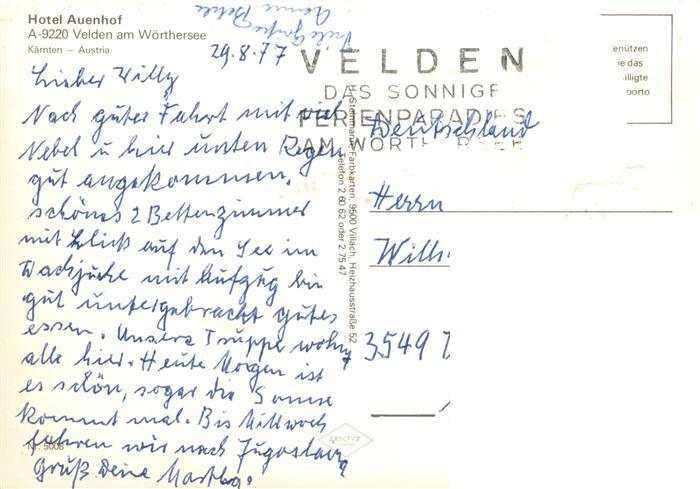 Hotel Auenhof
A-9220 Velden am Wörthersee
Kärnten – Austria
Viele Grüße
29.8.77
Lieber Willy
Nach guter Fahrt mit viel
Nebel u hier unten Regen
gut angekommen.
schönes 2 Bettenzimmer
mit Blick auf den See im
mit Aufzug bin
gut untergebracht gutes
essen. Unsere Truppe wohnt
alle hier. Heute Morgen ist
es schön, sogar die Sonne
kommt mal. Bis Mittwoch
fahren wir nach Jugoslawien
Gruß Deine Martha.
Nr. 5008
VELDEN
DAS SONNIGE
FERIENPARADIES
AM WÖRTHERSEE
H. Steinmann-Farbkarten, 9500 Villach, Heizhausstraße 52
Telefon 2 60 62 oder 2 75 47
enützen
ie das
illigte
porto
Deutschland
Herrn
Willi
3549